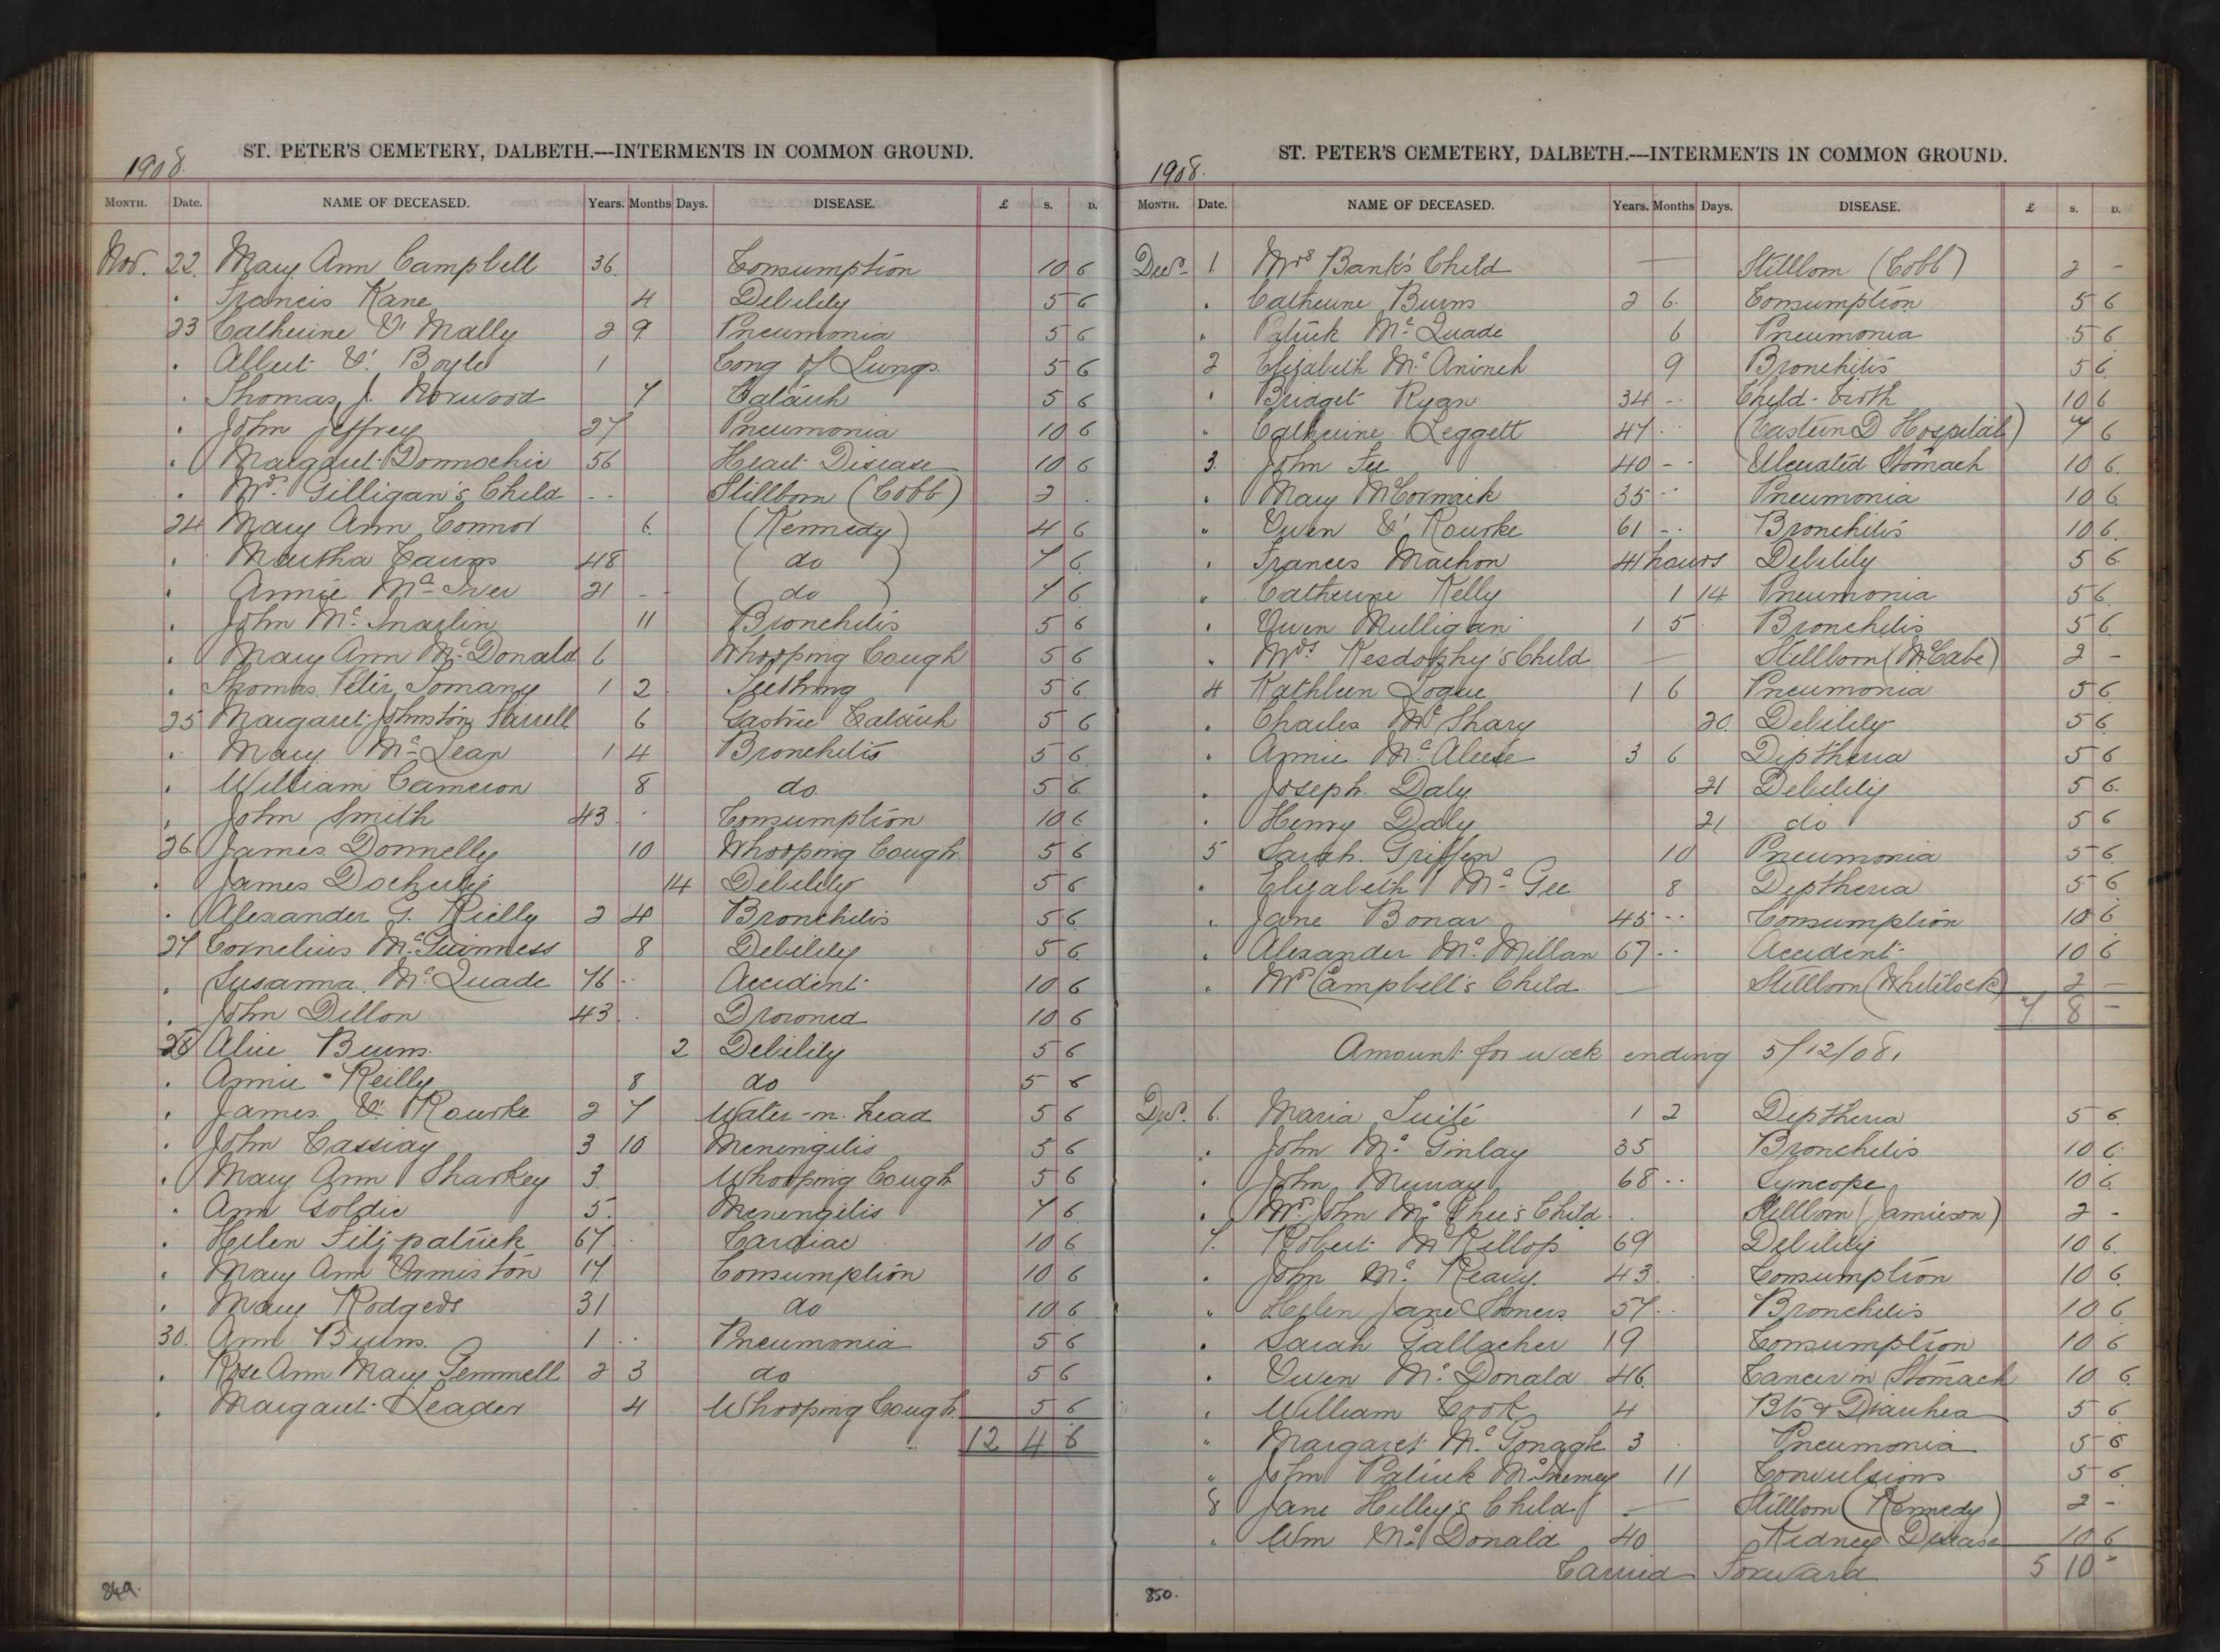 1908.
ST. PETER'S CEMETERY, DALBETH.—INTERMENTS IN COMMON GROUND.
MONTH. Date. NAME OF DECEASED. Years. Months Days. DISEASE. £ S. D.
Nov. 22. Mary Ann Campbell 36. Consumption 10 6
" Francis Kane 4 Debility 5 6
23 Catherine O' Mally 2 9 Pneumonia 5 6
" Albert O' Boyle 1 Cong of Lungs. 5 6
" Thomas J. Norwood 7 Catarrh 5 6
" John Jeffrey 27 Pneumonia 10 6
" Margaret Donnachie 56 Heart Disease 10 6
" Mrs. Gilligan's Child - - Stillborn (Cobb) 2 .
24 Mary Ann Connor 6. (Kennedy) 4 6
" Martha Cairns 48 ( do ) 7 6
" Annie Mc Iver 21 - - ( do ) 7 6
" John Mc 11 Bronchitis 5 6
" Mary Ann Mc Donald 6 Whooping Cough 5 6
" Thomas Peter Tomany 1 2 Teething 5 6
25 Margaret Johnston Farrell 6 Gastric Catarrh 5 6
" Mary Mc Lean 1 4 Bronchitis 5 6
" William Cameron 8 do. 5 6
" John Smith 43. Consumption 10 6
26. James Donnelly 10 Whooping Cough. 5 6
" James Docherty 14 Debility 5 6
" Alexander G. Rielly 2 4 Bronchitis 5 6
27 Cornelius Mc Guinness 8 Debility 5 6
" Susanna Mc Quade 76 - - Accident 10 6
" John Dillon 43 Drowned 10 6
28 Alice Burns. 2 Debility 5 6
" Annie Reilly 8 do 5 6
" James O' Rourke 2 7 Water-in-head 5 6
" John Cassiay 3 10 Menengitis 5 6
" Mary Ann Sharkey 3. Whooping Cough 5 6
" Ann Goldie 5. Menengitis 7 6
" Helen Fitzpatrick 67 Cardiac 10 6
" Mary Ann Ormiston 17. Consumption 10 6
" Mary Rodgers 31 do 10 6
30. Ann Burns. 1 - - Pneumonia 5 6
" Rose Ann Mary Gemmell 2 3 do 5 6
" Margaret Leader 4 Whooping Cough. 5 6
12 4 6
849.
1908.
ST. PETER'S CEMETERY, DALBETH.—INTERMENTS IN COMMON GROUND.
MONTH. Date. NAME OF DECEASED. Years. Months Days. DISEASE. £ S. D.
Decr. 1 Mrs Bank's Child — Stillborn (Cobb) 2 -
" Catherine Burns 2 6. Consumption 5 6
" Patrick Mc Quade 6 Pneumonia 5 6
2 Elizabeth Mc Aninch 9 Bronchitis 5 6
" Bridget Ryan 34 - - Child-birth 10 6
" Catherine Leggett 47 - - (Eastern D Hospital) 7 6
3. John Fee 40 - - Ulcerated Stomach 10 6
" Mary McCormick 35 - - Pneumonia 10 6
" Owen O' Rourke 61 - - Bronchitis 10 6.
" Frances Machon 41 hours Debility 5 6
" Catherine Kelly 1 14 Pneumonia 5 6
" Owen Mulligan 1 5 Bronchitis 5 6
" Mrs Child — Stillborn (McCabe) 2 -
4 Kathleen Logue 1 6 Pneumonia 5 6
" Charles Mc Shary 20. Debility 5 6
" Annie Mc Aleese 3 6 Diptheria 5 6
" Joseph Daly 21 Debility 5 6.
" Henry Daly 21 do 5 6
5 Sarah Griffen 10 Pneumonia 5 6
" Elizabeth Mc Gee 8 Diptheria 5 6
" Jane Bonar 45 - - Consumption 10 6
" Alexander Mc Millan 67 - - Accident 10 6
" Mrs Campbell's Child — Stillborn (Whitelock) 2 -
7 8 -
Amount for week ending 5/12/08.
Decr. 6. Maria Suite 1 2 Diptheria 5 6
" John Mc Ginlay 35 Bronchitis 10 6
" John Murray 68 - - Syncope 10 6
" Mrs John Mc Ghee's Child Stillborn (Jamieson) 2 -
7. Robert McKillop 69 Debility 10 6
" John Mc Reavy 43. Consumption 10 6
" Helen Jane Somers 57 - - Bronchitis 10 6
" Sarah Gallacher 19 Consumption 10 6
" Owen Mc Donald 46. Cancer in Stomach 10 6
" William Cook 4 Bts & Diarrhea 5 6
" Margaret Mc Gonagle 3 Pneumonia 5 6
" John Patrick McInerney 11 Convulsions 5 6
8 Jane Hilley's Child — Stillborn (Kennedy) 2 -
" Wm Mc Donald 40 Kidney Disease 10 6
Carried Forward 5 10 -
850.